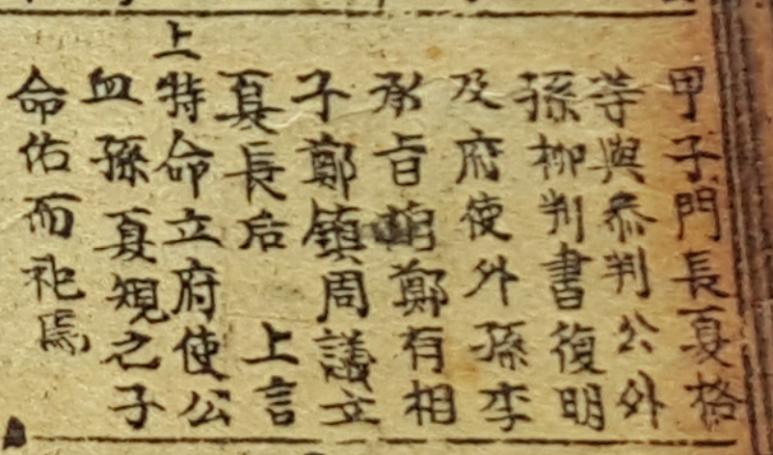 甲子門長夏格
等與叅判公外
孫柳判書復明
及府使外孫李
承旨鄭有相
子鄭鎮周議立
夏長后 上言
上特命立府使公
血孫夏䂓之子
命佑而祀焉